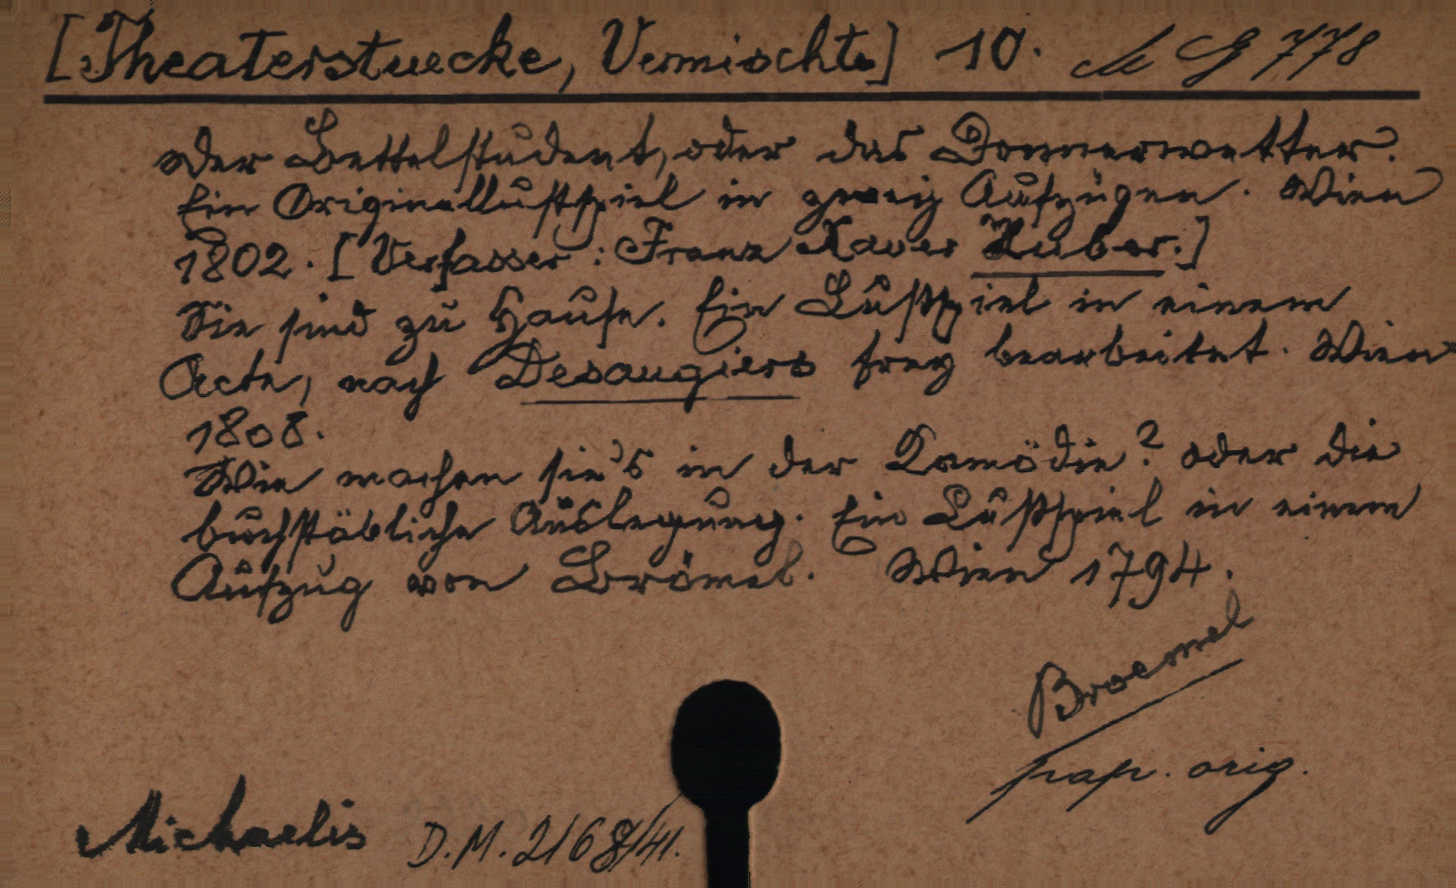 [Theaterstuecke, Vermischte] 10. M G 778
Der Bettelstudent, oder das Donnerwetter.
Ein Originallustspiel in zweiy Aufzügen. Wien
1802. [Verfasser: Franz Xaver Huber.]
Sie sind zu Hause. Ein Lustspiel in einem
Acte, nach Desaugiers frey bearbeitet. Wien
1808.
Wie machen sie's in der Komödie? oder die
buchstäbliche Auslegung. Ein Lustspiel in einem
Aufzug von Brömel. Wien 1794.
Broemel
pap. orig.
Michaelis D.M. 2168/41.